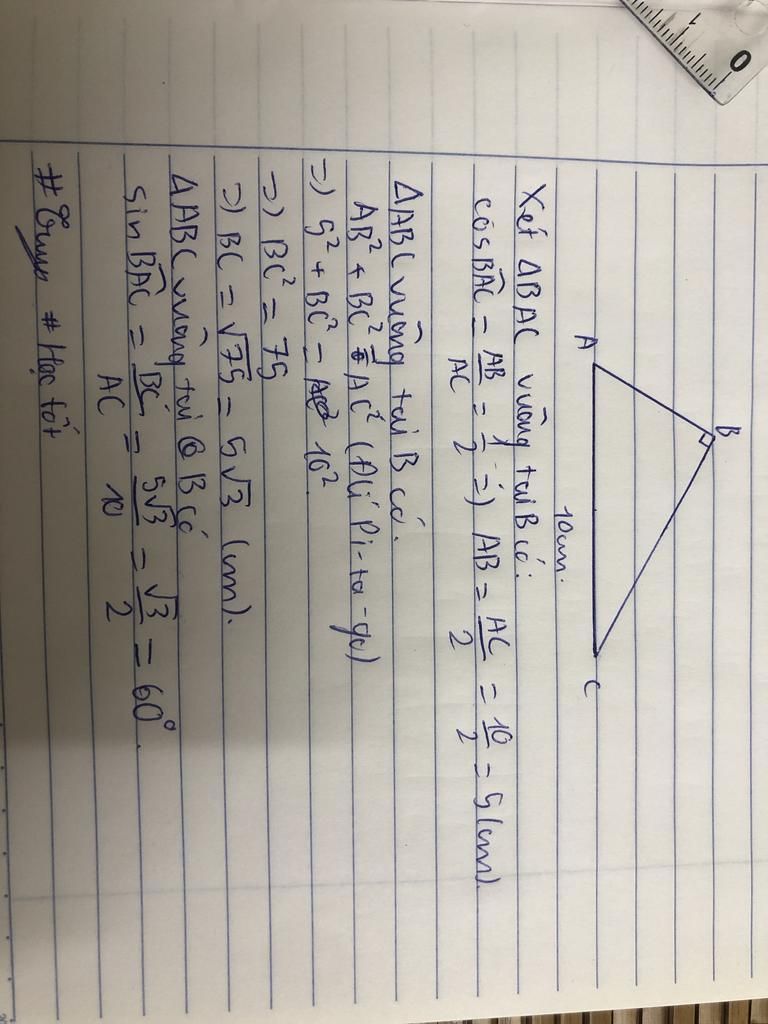 0 1
B
A
C
10cm.
Xét ΔBAC vuông tại B có:
cos BAC = AB/AC = 1/2 => AB = AC/2 = 10/2 = 5 (cm).
ΔABC vuông tại B có.
AB² + BC² = AC² (Đlí Pi-ta-go)
=> 5² + BC² = 10²
=> BC² = 75
=> BC = √75 = 5√3 (cm).
ΔABC vuông tại B có
sin BAC = BC/AC = 5√3/10 = √3/2 = 60°.
# Học tốt